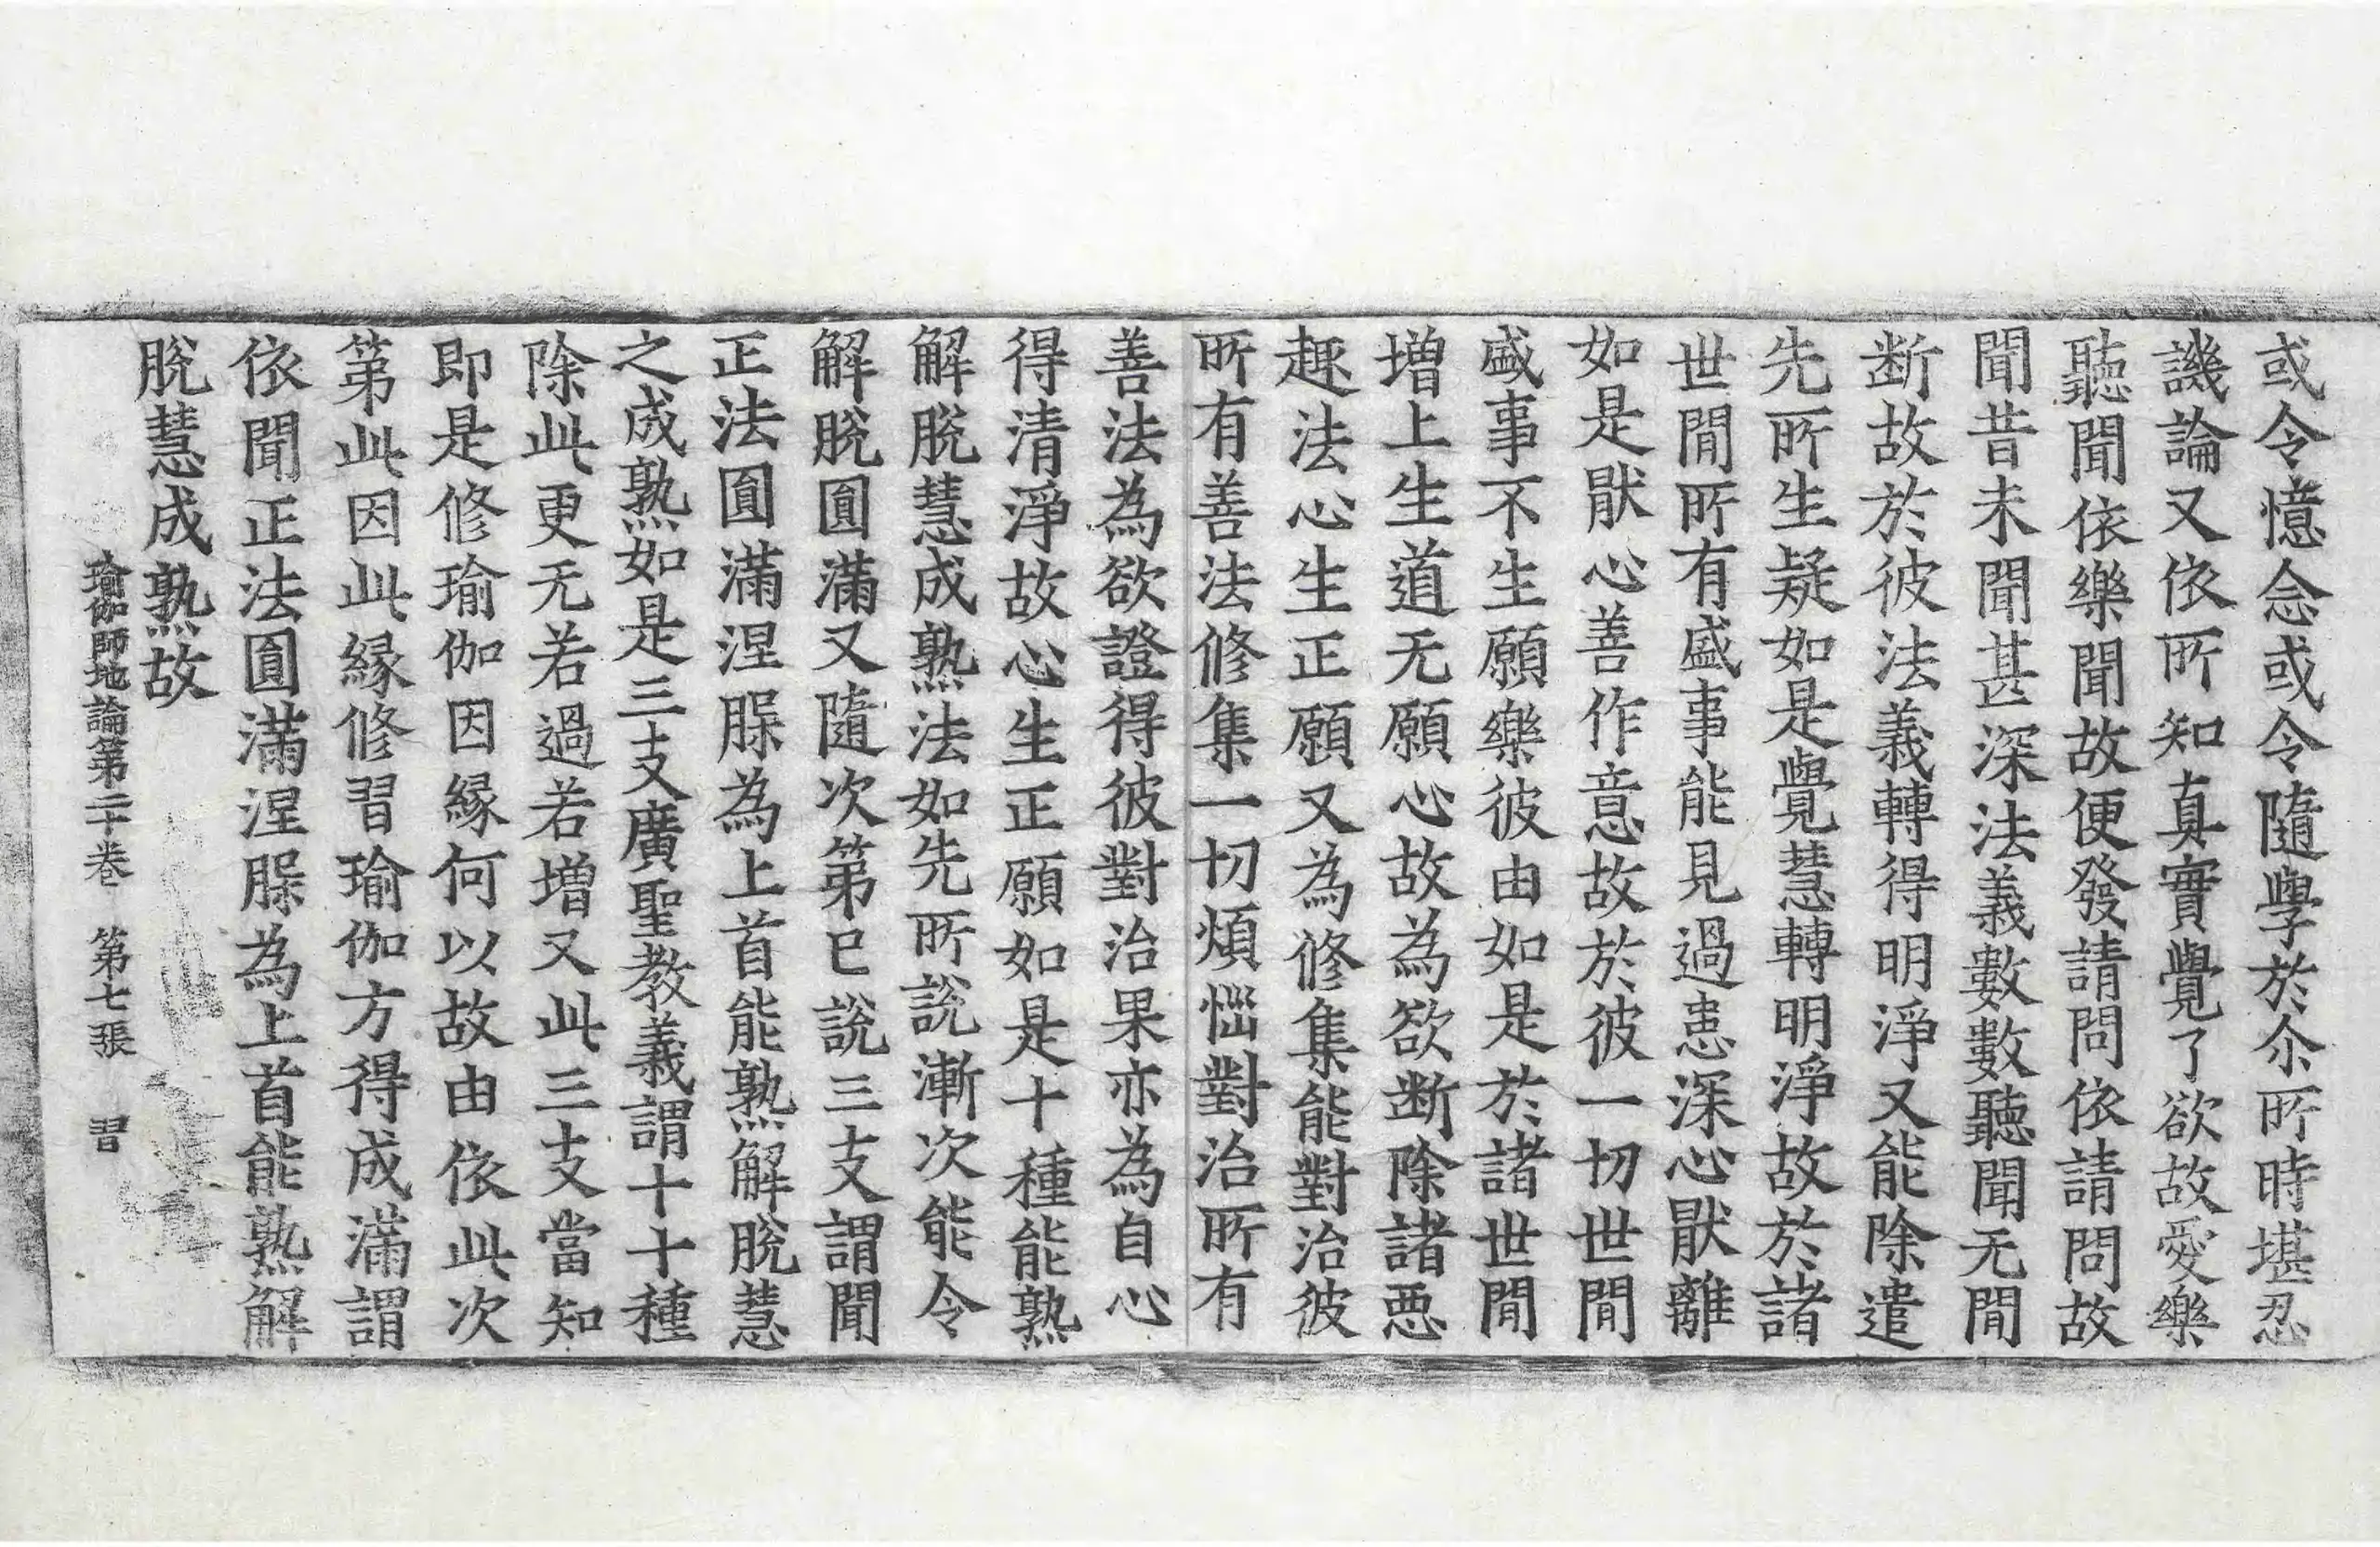 或令憶念或令隨學於尒所時堪忍
譏論又依所知真實覺了欲故愛樂
聽聞依樂聞故便發請問依請問故
聞昔未聞甚深法義數數聽聞无閒
断故於彼法義轉得明淨又能除遣
先所生疑如是覺慧轉明淨故於諸
世閒所有盛事能見過患深心猒離
如是猒心善作意故於彼一切世閒
盛事不生願樂彼由如是於諸世閒
增上生道无願心故為欲断除諸惡
趣法心生正願又為修集能對治彼
所有善法修集一切煩惱對治所有
善法為欲證得彼對治果亦為自心
得清淨故心生正願如是十種能熟
解脫慧成熟法如先所說漸次能令
解脫圓滿又隨次第已說三支謂聞
正法圓滿涅槃為上首能熟解脫慧
之成熟如是三支廣聖教義謂十十種
除此更无若過若增又此三支當知
即是修瑜伽因緣何以故由依此次
第此因此緣修習瑜伽方得成滿謂
依聞正法圓滿涅槃為上首能熟解
脫慧成熟故
瑜伽師地論第二十卷 第七張 習